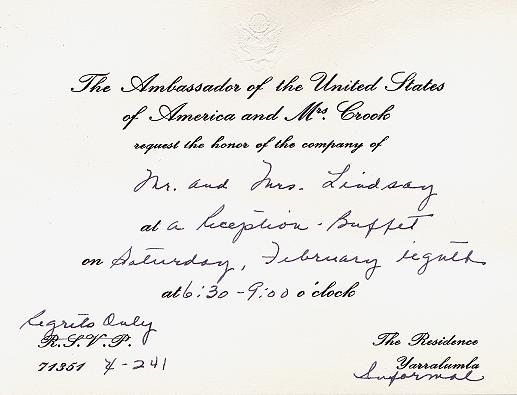 The Ambassador of the United States
of America and Mrs. Crook
request the honor of the company of
Mr. and Mrs. Lindsay
at a Reception-Buffet
on Saturday, February eighth
at 6:30-9:00 o'clock
Regrets Only
R.S.V.P.
71351 x-241
The Residence
Yarralumla
Informal